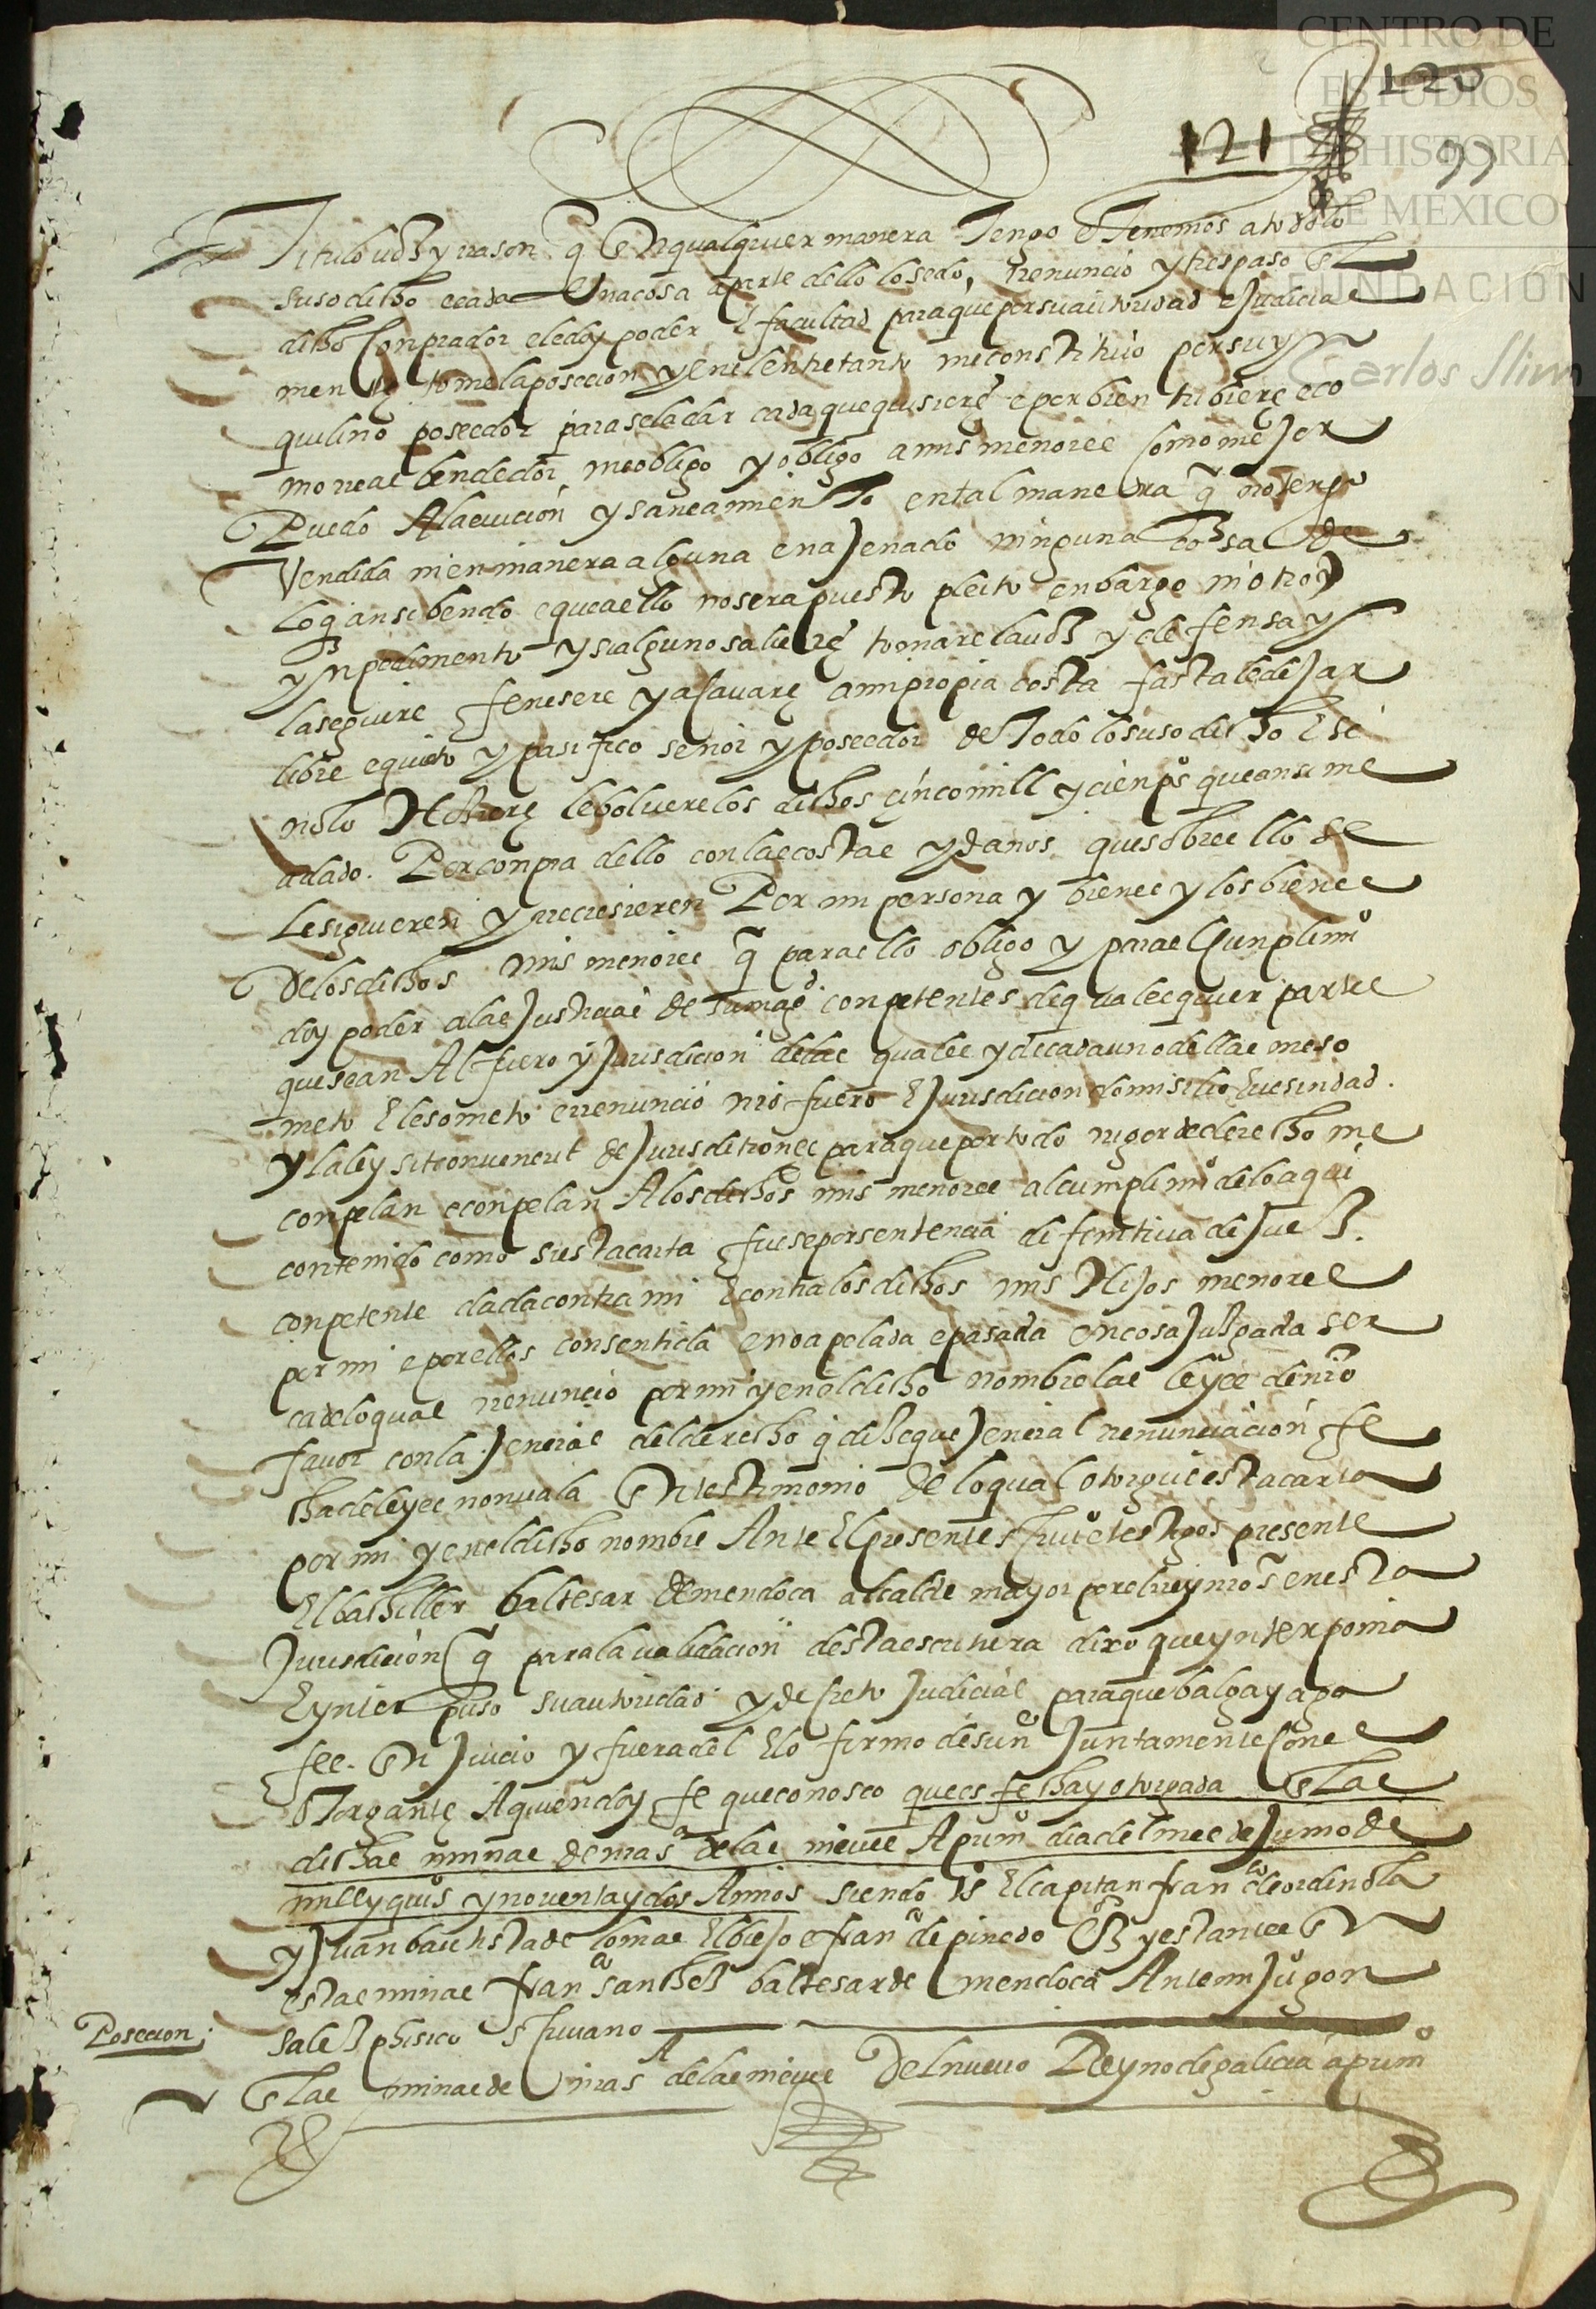 CENTRO DE
ESTUDIOS
DE HISTORIA
DE MÉXICO
FUNDACIÓN
Carlos Slim
120
121
99
Titulo uoz y rrason q̃ En qualquier manera Tengo E Tenemos a todo lo
suso dicho e cada Una cosa a parte dello lo sedo, rrenuncio y trespaso El
dicho Conprador e le doy poder E facultad para que por su autoridad e Judicial
mente tome la posecion y en el entretanto me constituio por su yn
quilino poseedor para se la dar cada que quisiere e por bien tubiere e co
mo rreal bendedor me obligo y obligo a mis menores Como mejor
Puedo A la euicion y saneamiento en tal manera q̃ no tengo
Vendida ni en manera alguna enajenado ninguna cossa de
lo q̃ ansi bendo e que a ello no sera puesto pleito enbargo ni otro
ynpedimento y si alguno saliere tomare la uoz y defensa y
la seguire fenesere y acauare a mi propia costa fasta le dejar
libre e quieto y pasifico señor y poseedor de Todo lo suso dicho E si
no lo Hiciere le bolvere los dichos cinco mill y cien p̃os que ansi me
a dado. Por conpra dello con las costas y daños que sobre ello se
le siguieren y rrecresieren Por mi persona y bienes y los bienes
De los dichos mis menores q̃ para ello obligo y para el Cunplimio
doy poder a las Justicias de su magd conpetentes de qualesquier partes
que sean Al fuero y Jurisdicion de las quales y de cada uno dellas me so
meto E le someto e rrenuncio nro fuero E Jurisdicion domisilio E uesindad.
y la ley sit convenerit de Jurisditiones para que por todo rrigor de derecho me
conpelan e conpelan A los dichos mis menores al cumplimio de lo aqui
contenido como si esta carta fuese por sentencia difinitiua de Juez.
conpetente dada contra mi E contra los dichos mis Hijos menores
por mi e por ellos consentida e no apelada e pasada en cosa Juzgada ser
ca de lo qual rrenuncio por mi y en el dicho nombre las leyes de nro
fauor con la Jeneral del derecho q̃ dize que Jeneral rrenunciacion fe
cha de leyes non uala En testimonio de lo qual otorgue esta carta
por mi y en el dicho nombre Ante El presente scriuo e testigos presente
El bachiller baltesar de mendoca alcalde mayor por el rrey nro s̃ en esta
Jurisdicion q̃ para la ualidacion desta escritura dixo que ynterponia
E ynterpuso su autoridad y decreto Judicial para que balga y aga
fee. En Juicio y fuera del E lo firmo de su ne Juntamente Con el
Otorgante A quien doy fe que conosco que es fecha y otorgada En las
dichas minas de nras a de las nieues A primo dia del mes de Junio de
mill y quios y nouenta y dos Años siendo ts El capitan franco de ordinola
y Juan bautista de lomas El biejo e franco de pinedo Vzos y estantes En
estas minas franco sanchez baltesar de mendoca Ante mi Juo gon
salez phisico scriuano
Posecion.
En las minas de nras a de las nieues Del nuevo Reyno de galicia a primo